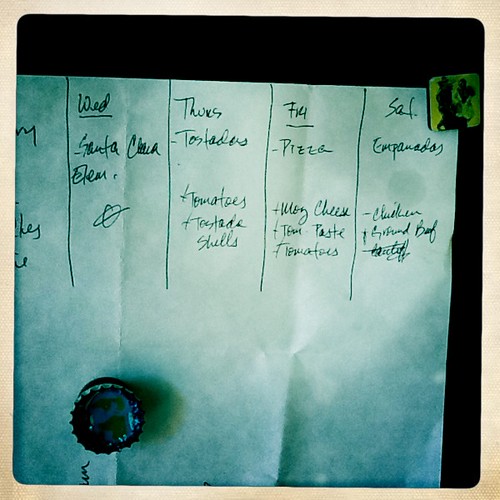 Wed
- Santa Clara
Elem.
Thurs
- Tostadas
+ Tomatoes
+ Tostada
Shells
Fri
- Pizza
+ Moz Cheese
+ Tom Paste
+ Tomatoes
Sat.
Empanadas
- Chicken
+ Ground Beef